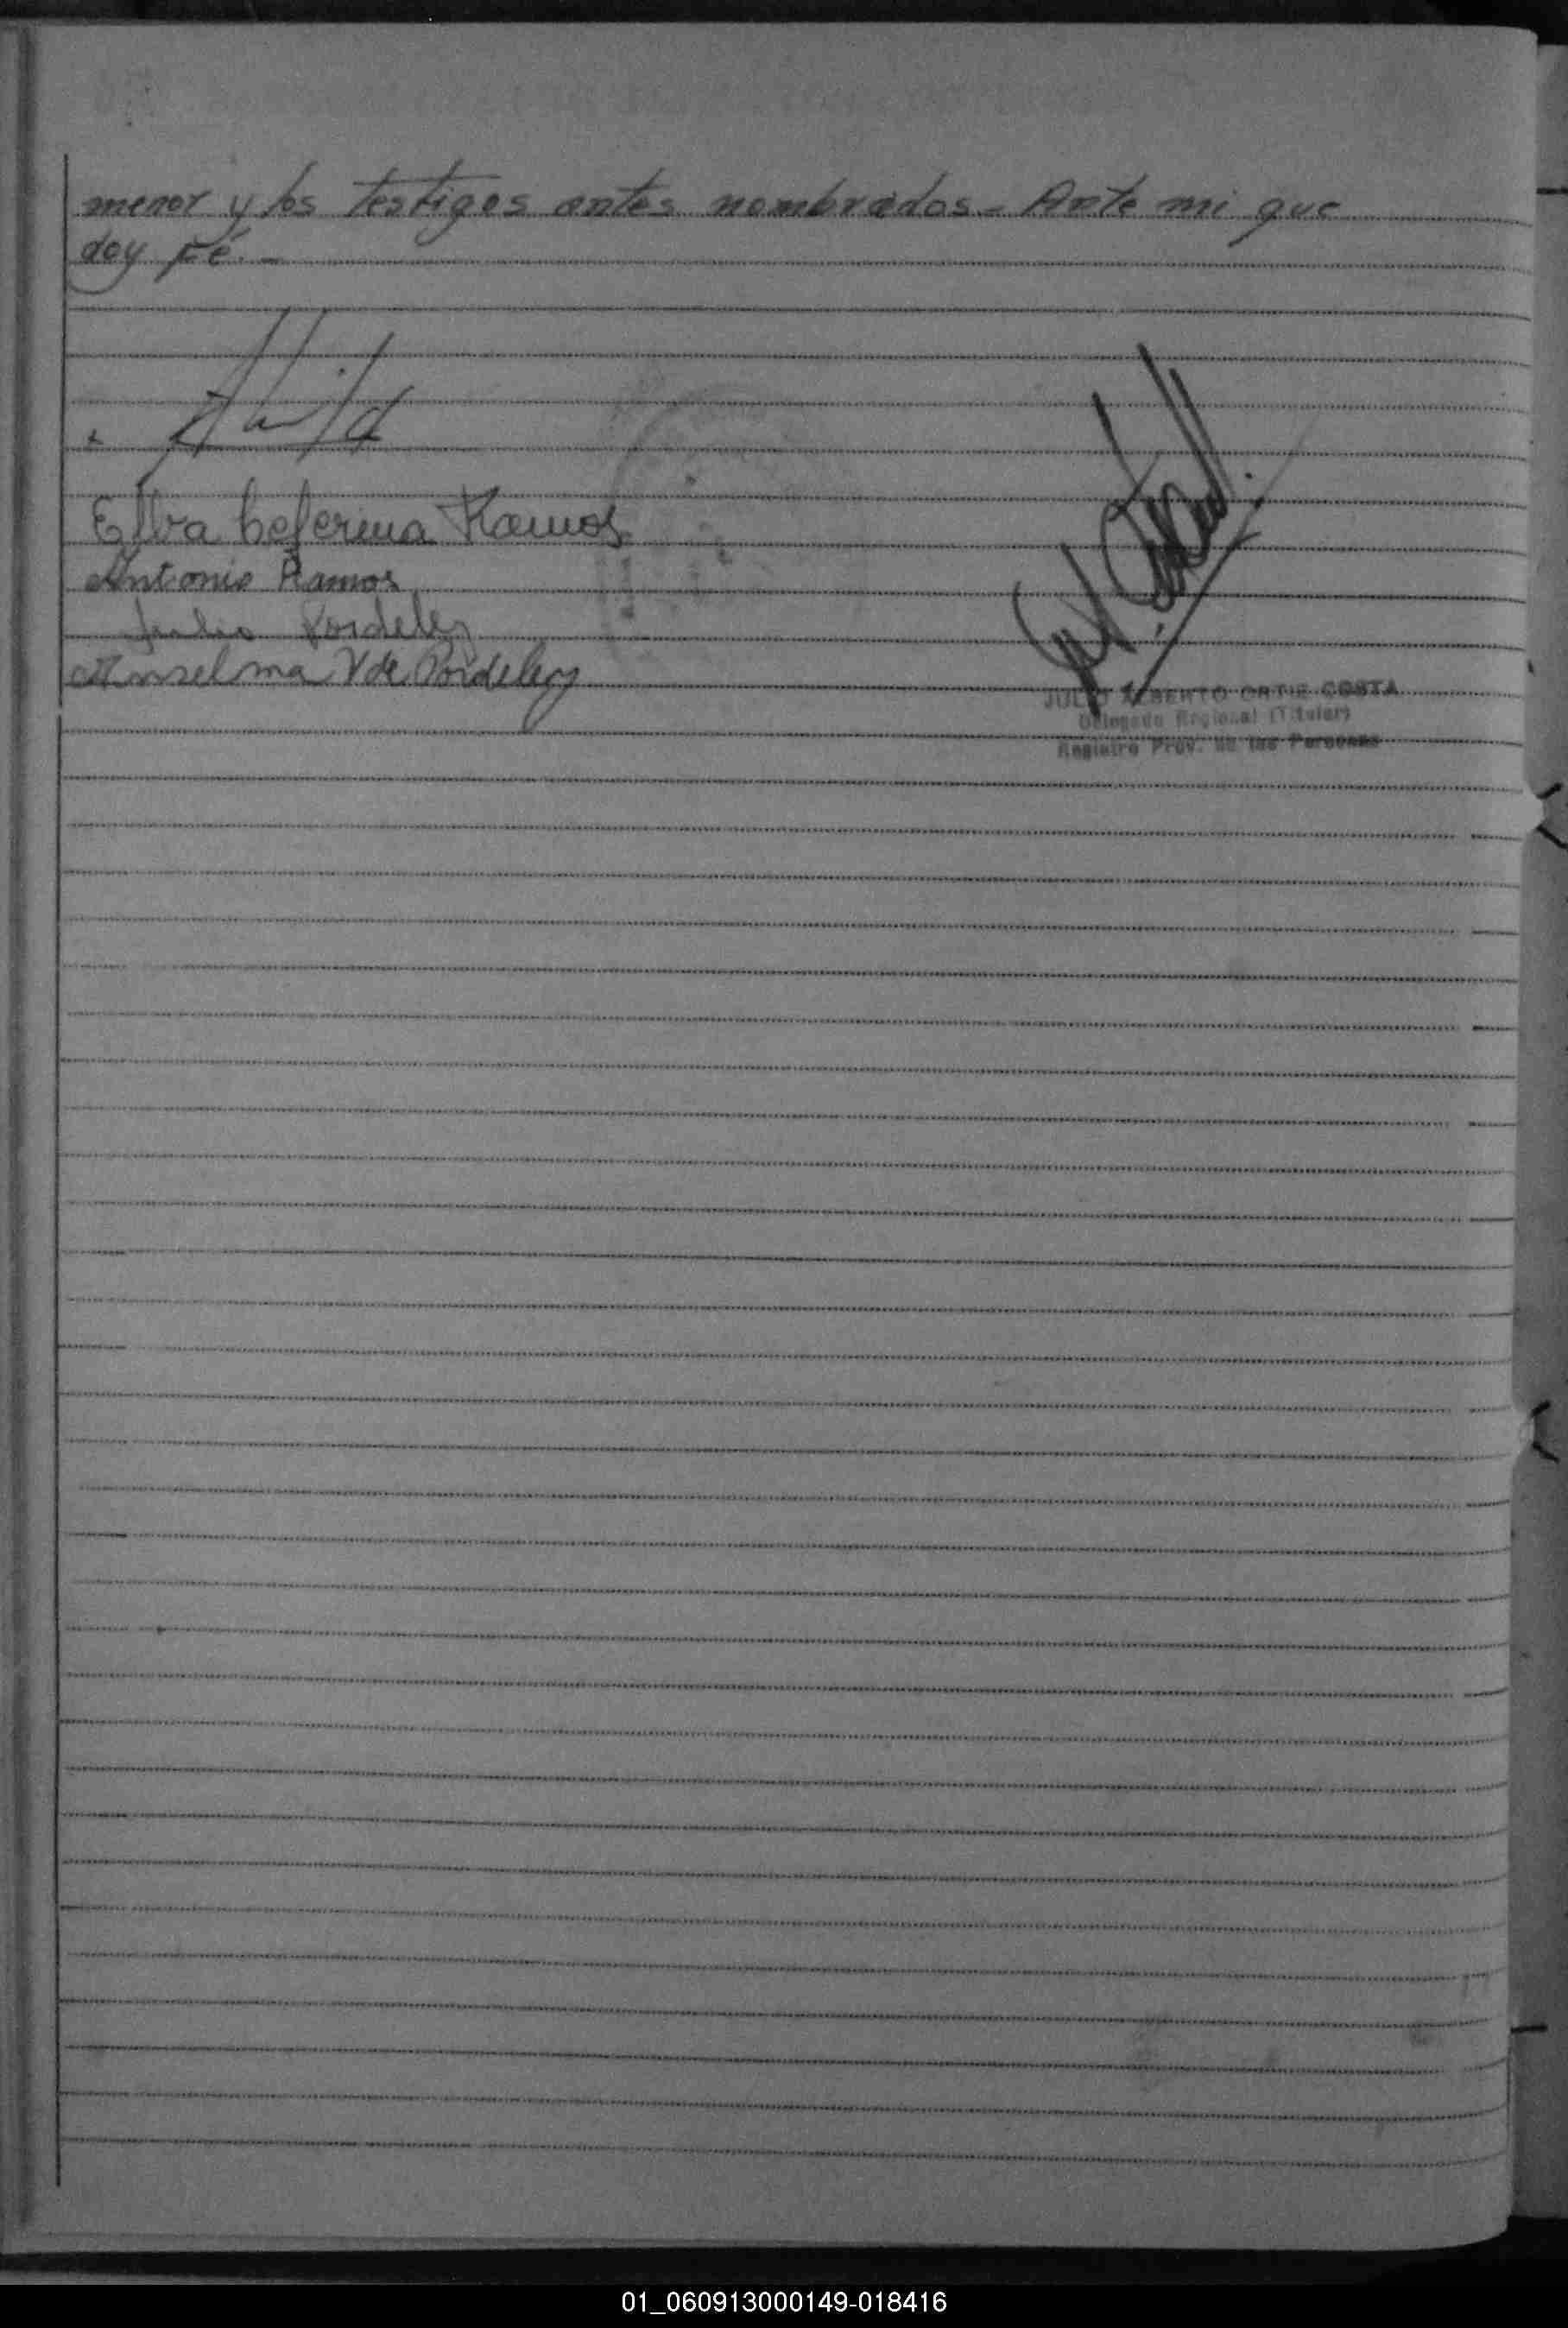 menor y los testigos antes nombrados - Ante mi que
doy fé. -
Elva Ceferina Ramos
Antonio Ramos
Julio Pordelez
Anselma V de Pordelez
JULIO ALBERTO ORTIZ COSTA
Delegado Regional (Titular)
Registro Prov. de las Personas
01_060913000149-018416